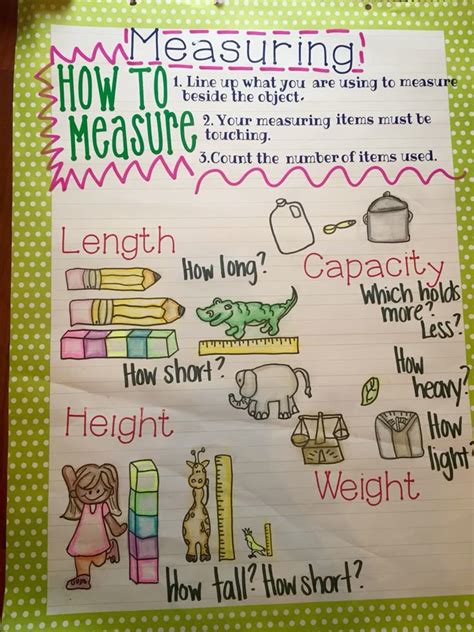 Measuring
HOW TO
Measure
1. Line up what you are using to measure
beside the object.
2. Your measuring items must be
touching.
3. Count the number of items used.
Length
How long?
Capacity
Which holds
more?
Less?
How short?
How
heavy?
Height
How
light?
Weight
How tall? How short?